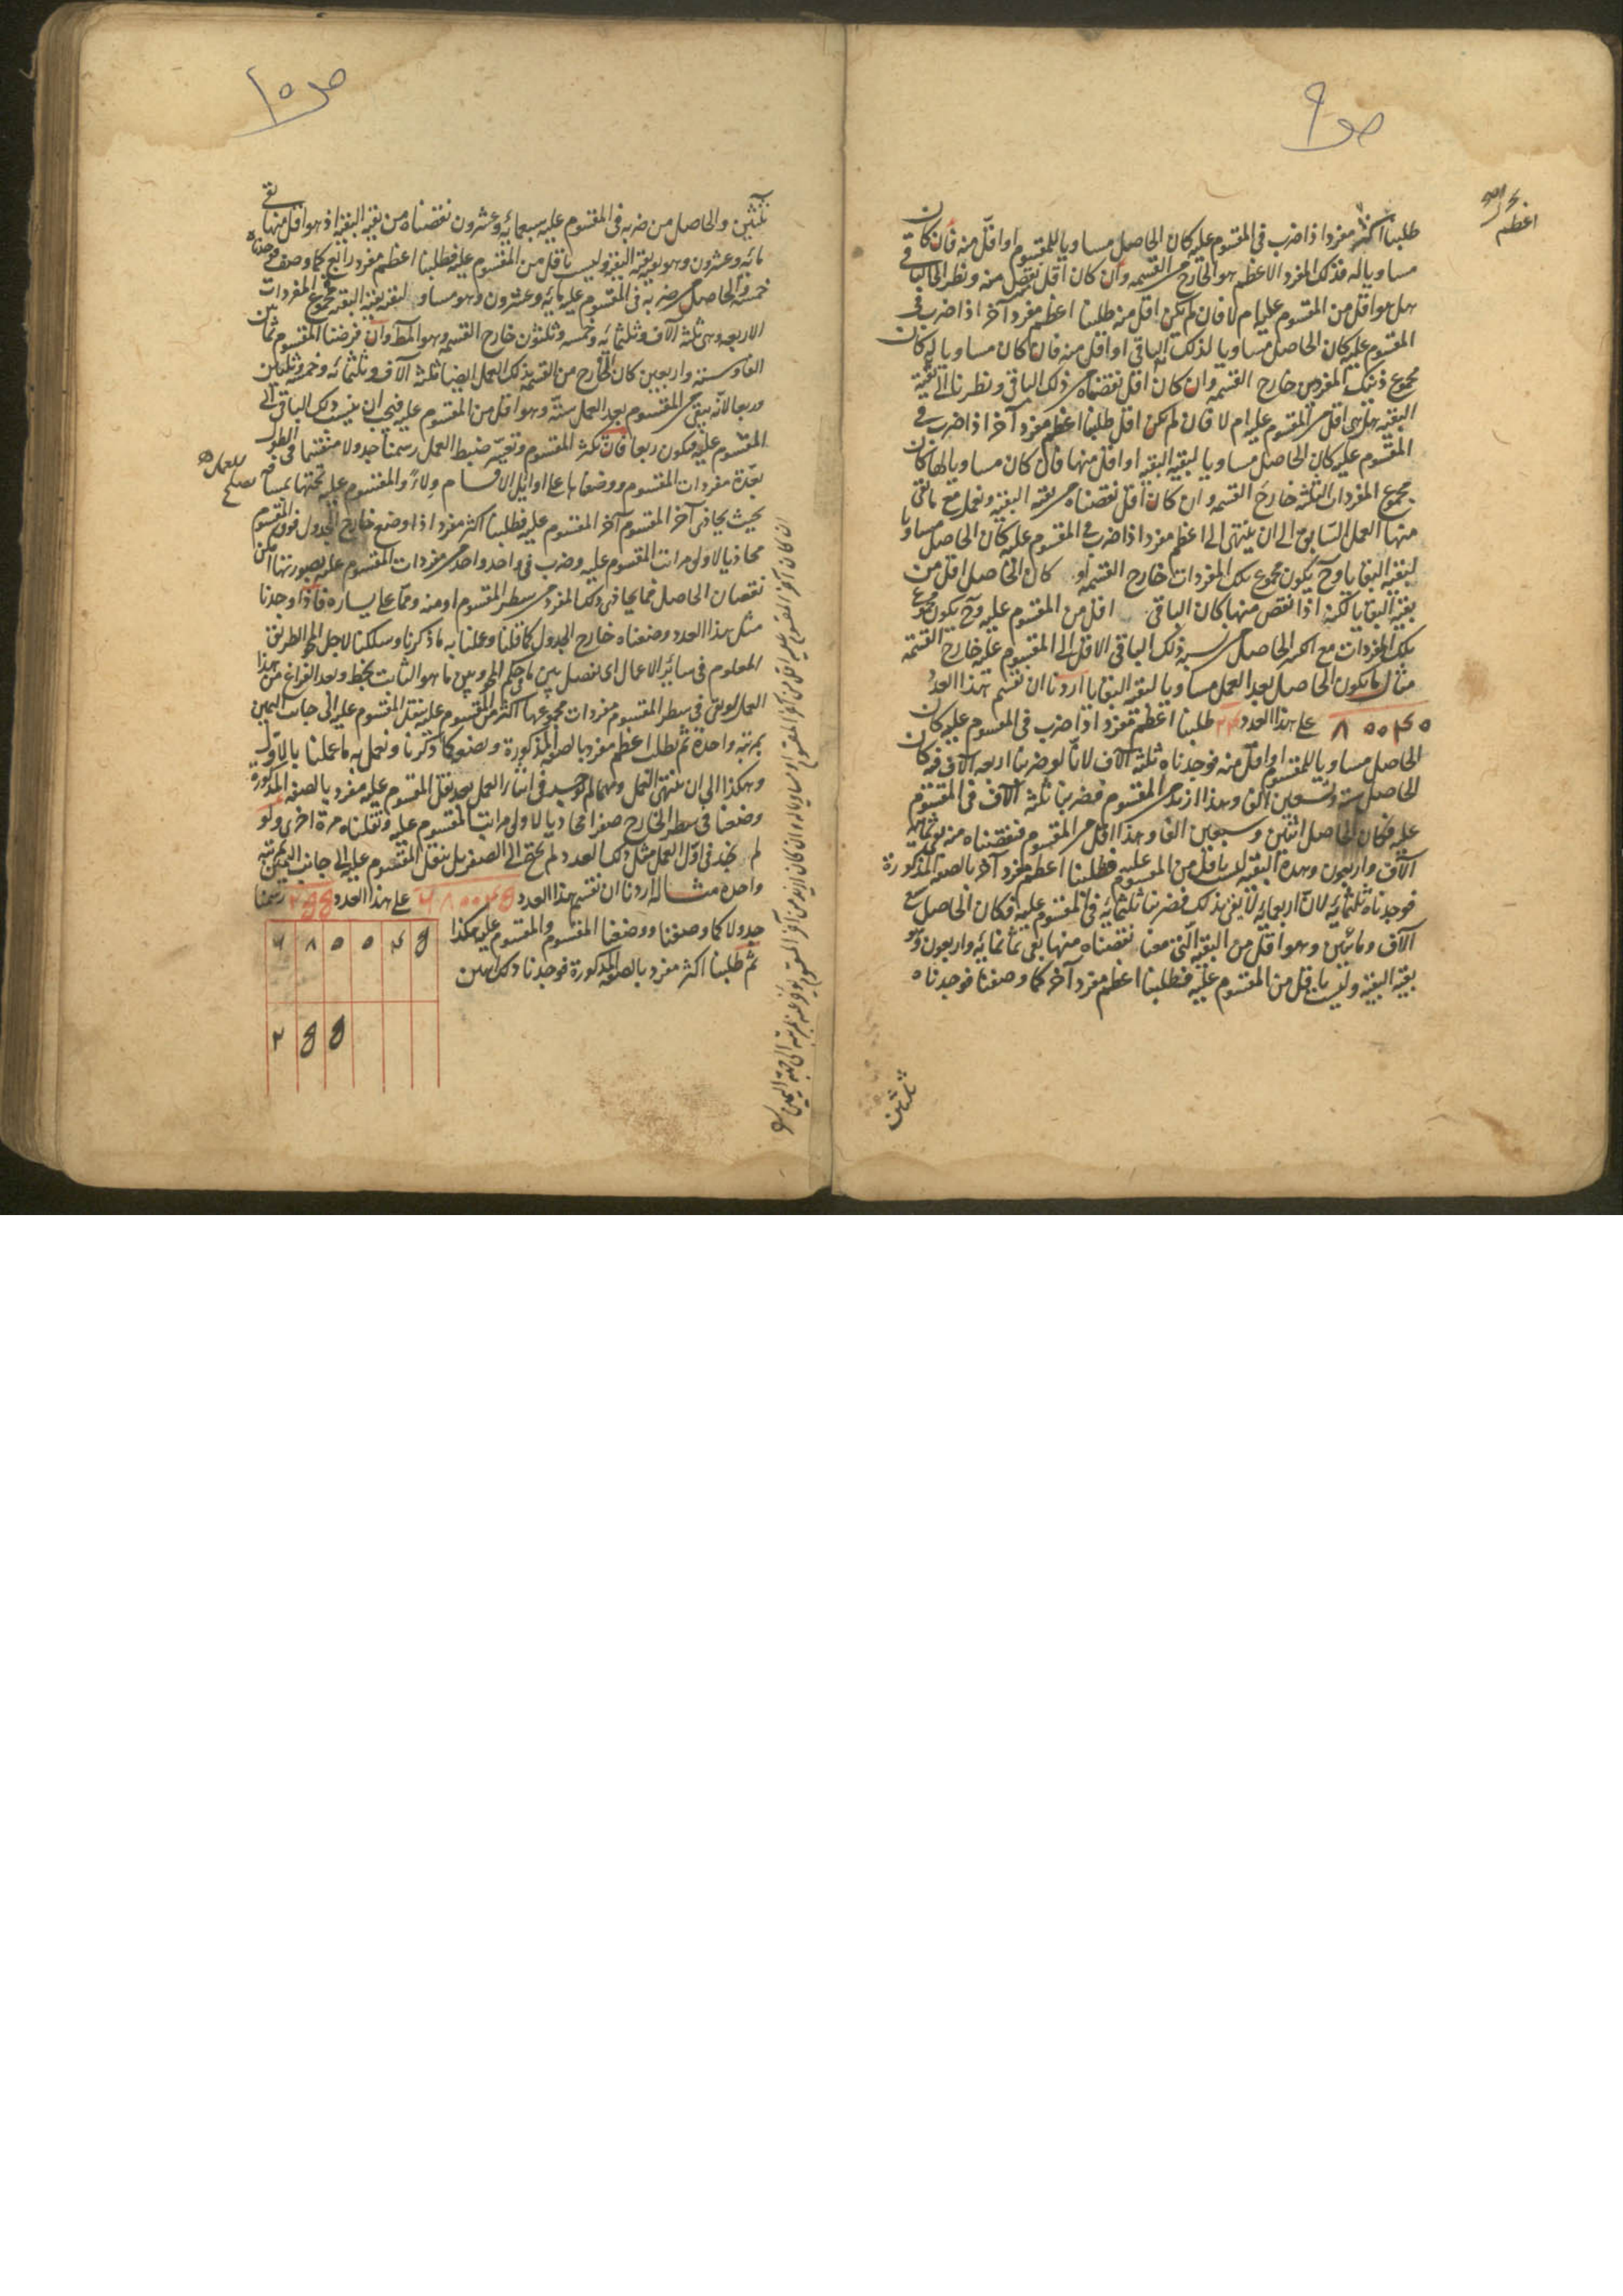 ص ٩
اعظم
طلبنا اكثر مفردا اذا ضرب فى المقسوم عليه كان الحاصل مساويا للمقسوم او اقل منه فان كان
مساويا له فذلك المفرد الاعظم هو الخارج من القسمه وان كان اقل نقص منه ونظر الى الباقى
هل هو اقل من المقسوم عليه ام لا فان لم يكن اقل منه طلبنا اعظم مفرد آخر اذا ضرب فى
المقسوم عليه كان الحاصل مساويا لذلك الباقى او اقل منه فان كان مساويا له كان
مجموع ذينك المفردين خارج القسمه وان كان اقل نقصناه من ذلك الباقى ونظرنا الى بقية
البقيه هل هى اقل من المقسوم عليه ام لا فان لم يكن اقل طلبنا اعظم مفرد آخر اذا ضرب فى
المقسوم عليه كان الحاصل مساويا لبقيه البقيه او اقل منها فان كان مساويا لها كان
مجموع المفردات الثلثه خارج القسمه وان كان اقل نقصناه من بقيه البقيه ونعمل مع باقى
منها العمل السابق الى ان ينتهى الى اعظم مفرد اذا ضرب فى المقسوم عليه كان الحاصل مساويا
لبقيه البقايا وح يكون مجموع تلك المفردات خارج القسمه او كان الحاصل اقل من
بقيه البقايا لكنه اذا نقص منها كان الباقى اقل من المقسوم عليه وح يكون مجموع
تلك المفردات مع الكسر الحاصل من نسبه ذلك الباقى الاقل الى المقسوم عليه خارج القسمه
مثال ما يكون الحاصل بعد العمل مساويا لبقيه البقايا اردنا ان نقسم هذا العدد
٨٠٠۴٠ على هذا العدد ٢۴ طلبنا اعظم مفرد اذا ضرب فى المقسوم عليه كان
الحاصل مساويا للمقسوم او اقل منه فوجدناه ثلثة آلاف لانا لو ضربنا اربعه آلاف فيه كان
الحاصل ستة وتسعين الفا وهذا ازيد من المقسوم فضربنا ثلثه آلاف فى المقسوم
عليه فكان الحاصل اثنين وسبعين الفا وهذا اقل من المقسوم فنقصناه منه بقى ثمانيه
آلاف واربعون وهذه البقيه ليست باقل من المقسوم عليه فطلبنا اعظم مفرد آخر بالصفه المذكورة
فوجدناه ثلثمائه لان اربعمائه لا يفى بذلك فضربنا ثلثمائه فى المقسوم عليه فكان الحاصل سبع
آلاف ومائتين وهو اقل من البقيه التى معنا نقصناه منها بقى ثمانمائه واربعون وهو
بقيه البقيه وليست باقل من المقسوم عليه فطلبنا اعظم مفرد آخر كما وصفنا فوجدناه
ثلثين
ص ١٠
ثلثين والحاصل من ضربه فى المقسوم عليه سبعمائه وعشرون نقصناه من بقيه البقيه اذ هو اقل منها بقى
مائه وعشرون وهو بقيه بقيه البقيه وليست باقل من المقسوم عليه فطلبنا اعظم مفرد رابع كما وصف فوجدناه
خمسه والحاصل من ضربه فى المقسوم عليه مائه وعشرون وهو مساو لبقيه بقيه البقيه فمجموع المفردات
الاربعه وهى ثلثه آلاف وثلثمائه وخمسه وثلثون خارج القسمه وهو المط وان فرضنا المقسوم ثمانين
الفا وستة واربعين كان الخارج من القسمه بذلك العمل ايضا ثلثه آلاف وثلثمائه وخمسه وثلثين
وربعا لانه يبقى من المقسوم بعد العمل ستة وهو اقل من المقسوم عليه فيجب ان ينسب ذلك الباقى الى
المقسوم عليه فيكون ربعا فان كثر المقسوم وتعسر ضبط العمل رسمنا جدولا منقسما فى الطول
بعدة مفردات المقسوم ووضعناها على اوائل الاقسام ولاء والمقسوم عليه تحتها بمسافه
بحيث يحاذى آخر المقسوم آخر المقسوم عليه فطلبنا اكثر مفرد اذا وضع خارج الجدول فوق المقسوم
محاذيا لاولى مراتب المقسوم عليه وضرب فى واحد واحد من مفردات المقسوم عليه بصورتها امكن
نقصان الحاصل مما يحاذى ذلك المفرد من سطر المقسوم او منه ومما على يساره فاذا وجدنا
مثل هذا العدد وضعناه خارج الجدول كما قلنا وعملنا به ما ذكرنا وسلكنا لاجل المحو الطريق
المعلوم فى سائر الاعمال اى نفصل بين ما فى حكم المحو وبين ما هو الثابت بخط وبعد الفراغ من هذا
العمل لو بقى فى سطر المقسوم مفردات مجموعها اكثر من المقسوم عليه ننقل المقسوم عليه الى جانب اليمين
بمرتبه واحدة ثم نطلب اعظم مفرد بالصفه المذكورة ونضعه كما ذكرنا ونعمل به ما عملنا بالاول
وهكذا الى ان ينتهى العمل ومهما لم يوجد فى اثناء العمل بعد نقل المقسوم عليه مفرد بالصفه المذكورة
وضعنا فى سطر الخارج صفرا محاذيا لاولى مراتب المقسوم عليه ونقلناه مرة اخرى ولو
لم نجد فى اول العمل مثل ذلك العدد لم نحتج الى الصفر بل ننقل المقسوم عليه الى جانب اليمين بمرتبه
واحدة مثاله اردنا ان نقسم هذا العدد ۶٨٠٠۴۵ على هذا العدد ٢۵۵ رسمنا
جدولا كما وصفنا ووضعنا المقسوم والمقسوم عليه هكذا
ثم طلبنا اكثر مفرد بالصفه المذكورة فوجدنا ذلك اثنين
۶ ٨ ٠ ٠ ۴ ۵
٢ ۵ ۵